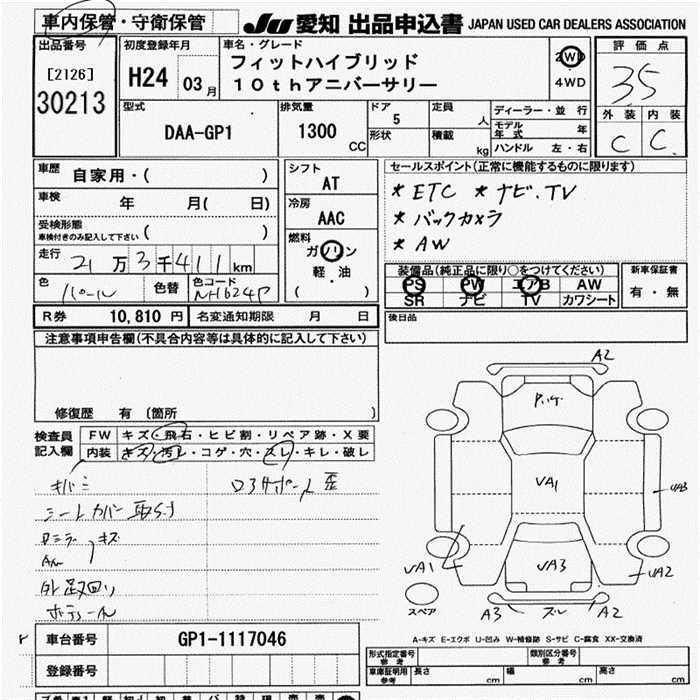 車内保管・守衛保管
JU 愛知 出品申込書 JAPAN USED CAR DEALERS ASSOCIATION
出品番号
[2126]
30213
初度登録年月
H24 03月
車名・グレード
フィットハイブリッド
10thアニバーサリー
2WD
4WD
評価点
35
外装 内装
C C
型式
DAA-GP1
排気量
1300
CC
ドア
5
形状
定員
人
積載
kg
ディーラー・並行
モデル年式 年
ハンドル 左・右
車歴
自家用・( )
車検
年 月( 日)
受検形態
車検付きのみ記入して下さい ( )
走行
21万3千411km
色
パール
色替
色コード
NH624P
シフト
AT
冷房
AAC
燃料
ガソリン
軽・油
( )
セールスポイント(正常に機能するものに限ります)
* ETC * ナビ.TV
* バックカメラ
* AW
装備品(純正品に限り○をつけてください)
PS PW エアB AW
SR ナビ TV カワシート
新車保証書
有・無
R券 10,810円 名変通知期限 月 日
後日品
注意事項申告欄(不具合内容等は具体的に記入して下さい)
修復歴 有 (箇所 )
検査員記入欄
FW キズ・飛石・ヒビ割・リペア跡・X要
内装 キズ・汚レ・コゲ・穴・スレ・キレ・破レ
キバミ
シートカバー取付
キズ
A2
VA1
UA3
VA1
VA3
UA2
スペア
A3 スレ A2
A-キズ E-エクボ U-凹み W-補修跡 S-サビ C-腐食 XX-交換済
車台番号 GP1-1117046
登録番号
形式指定番号
参考
類別区分番号
参考
車庫証明用
参考
長さ cm 幅 cm 高さ cm